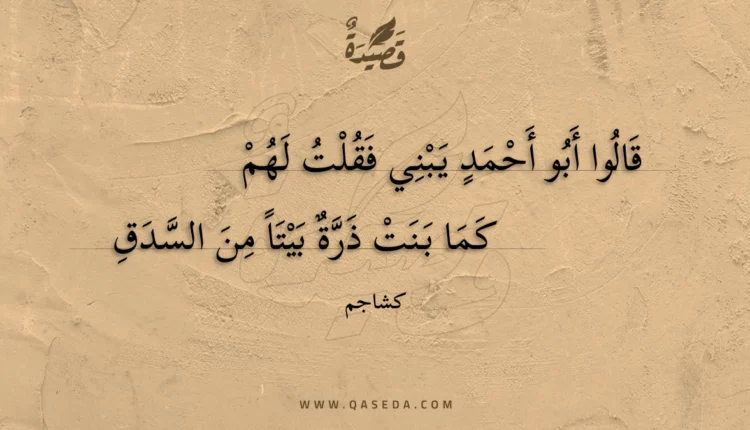 قَصِيدَةٌ
قَالُوا أَبُو أَحْمَدٍ يَبْنِي فَقُلْتُ لَهُمْ
كَمَا بَنَتْ ذَرَّةٌ بَيْتَاً مِنَ السَّدَقِ
كشاجم
WWW.QASEDA.COM